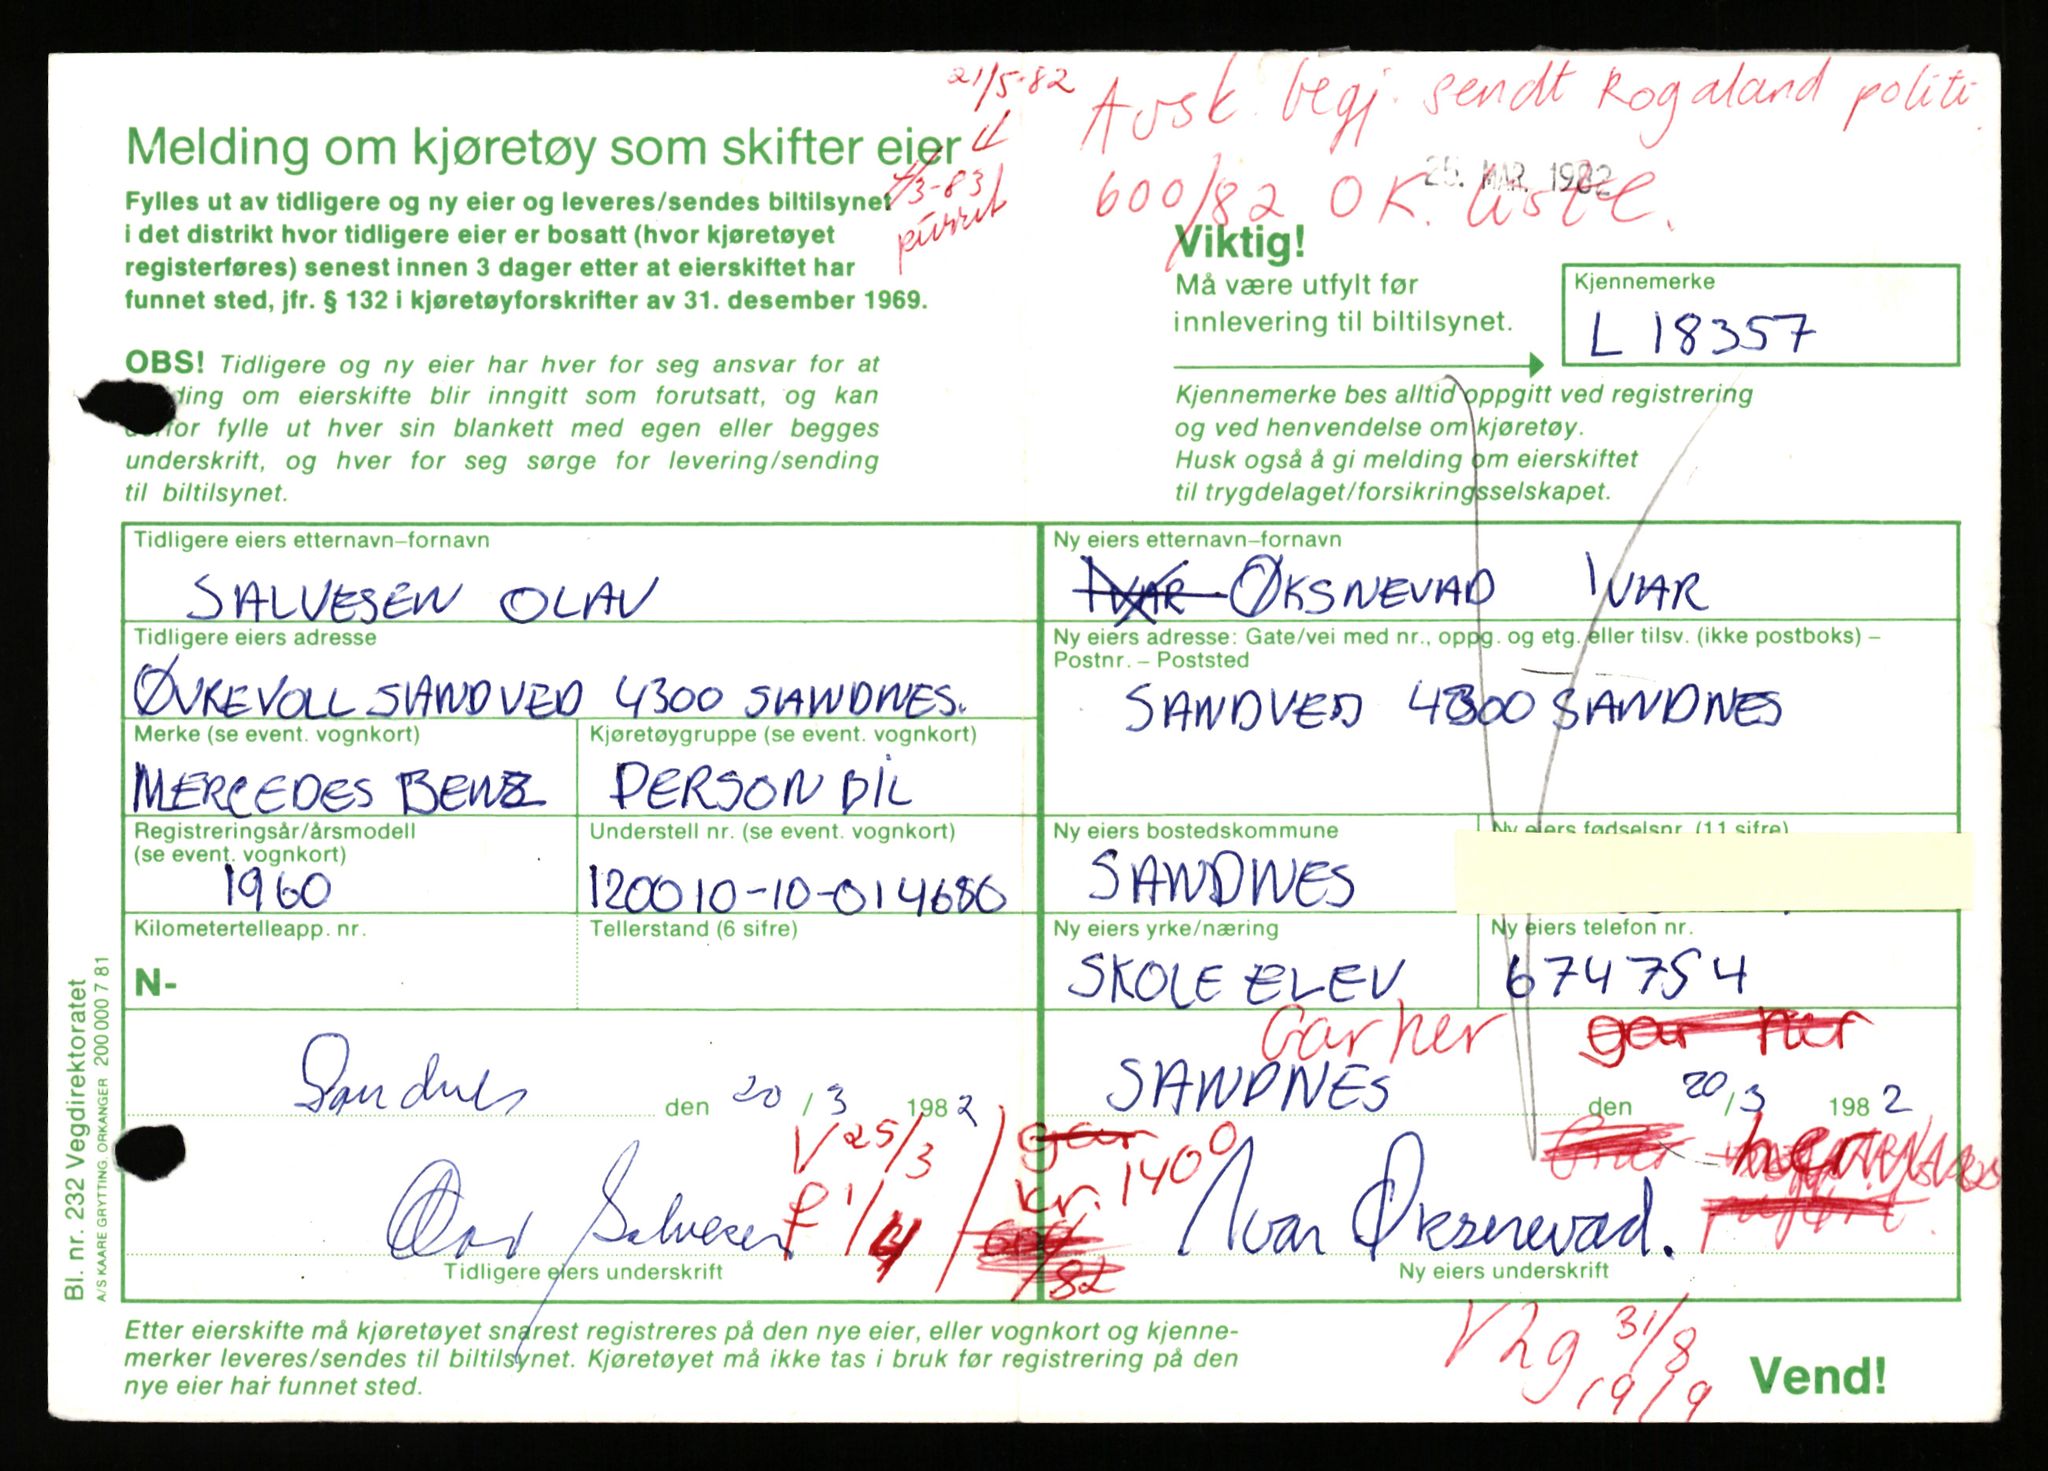 21/5-82
Avsk. begj. sendt Rogaland politi.
Melding om kjøretøy som skifter eier
1/3-83
purret
600/82 OK. liste.
25. MAR. 1982
Fylles ut av tidligere og ny eier og leveres/sendes biltilsynet
i det distrikt hvor tidligere eier er bosatt (hvor kjøretøyet
registerføres) senest innen 3 dager etter at eierskiftet har
funnet sted, jfr. § 132 i kjøretøyforskrifter av 31. desember 1969.
Viktig!
Må være utfylt før
innlevering til biltilsynet.
Kjennemerke
L 18357
OBS! Tidligere og ny eier har hver for seg ansvar for at
ding om eierskifte blir inngitt som forutsatt, og kan
derfor fylle ut hver sin blankett med egen eller begges
underskrift, og hver for seg sørge for levering/sending
til biltilsynet.
Kjennemerke bes alltid oppgitt ved registrering
og ved henvendelse om kjøretøy.
Husk også å gi melding om eierskiftet
til trygdelaget/forsikringsselskapet.
Tidligere eiers etternavn–fornavn
SALVESEN OLAV
Ny eiers etternavn–fornavn
IVAR ØKSNEVAD IVAR
Tidligere eiers adresse
ØVREVOLL SANDVED 4300 SANDNES.
Ny eiers adresse: Gate/vei med nr., oppg. og etg. eller tilsv. (ikke postboks) –
Postnr. – Poststed
SANDVED 4300 SANDNES
Merke (se event. vognkort)
MERCEDES BENZ
Kjøretøygruppe (se event. vognkort)
PERSON BIL
Registreringsår/årsmodell
(se event. vognkort)
1960
Understell nr. (se event. vognkort)
120010-10-014680
Ny eiers bostedskommune
SANDNES
Ny eiers fødselsnr. (11 sifre)
Kilometertelleapp. nr.
N-
Tellerstand (6 sifre)
Ny eiers yrke/næring
SKOLE ELEV
Ny eiers telefon nr.
674754
Gar her
gar her
Sandnes den 20/3 1982
SANDNES den 20/3 1982
V 25/3
gar
kr. 1400
her
F 1/4
/82
Olav Salvesen
Tidligere eiers underskrift
Ivar Øksnevad.
Ny eiers underskrift
Etter eierskifte må kjøretøyet snarest registreres på den nye eier, eller vognkort og kjenne-
merker leveres/sendes til biltilsynet. Kjøretøyet må ikke tas i bruk før registrering på den
nye eier har funnet sted.
31/8
19/9
Vend!
Bl. nr. 232 Vegdirektoratet
A/S KAARE GRYTTING, ORKANGER 200 000 7 81